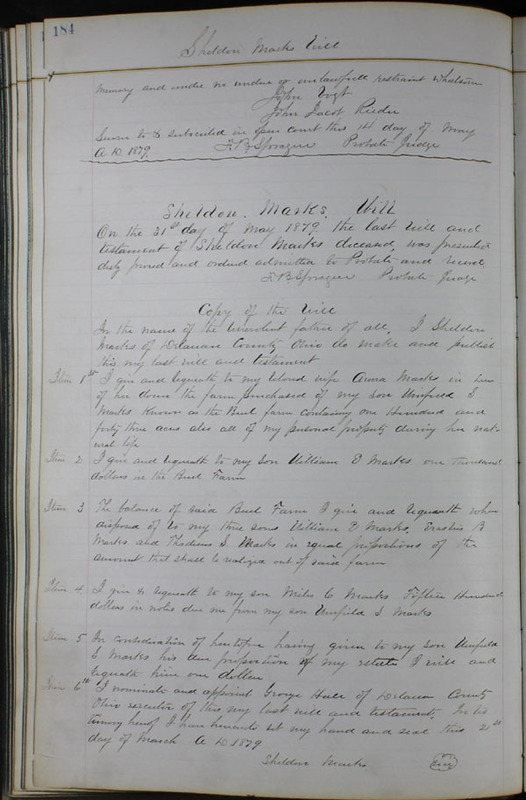 184
Sheldon Marks Will
memory and under no undue or unlawfull restraint whatsoever
John Vogt
John Jacob
Sworn to & subscribed in open court this 14 day of May
A D. 1879. F. B Sprague Probate Judge
Sheldon. Marks. Will
On the 31st day of May 1879. the last will and
testament of Sheldon Marks deceased, was presented
duly proved and ordered admitted to Probate and record
F. B Sprague Probate Judge
Copy of the Will
In the name of the benevolent father of all, I Sheldon
Marks of Delaware County Ohio do make and publish
this my last will and testament
Item 1st I give and bequeath to my beloved wife Anna Marks in lieu
of her dower the farm purchased of my son Winfield S
Marks known as the Buel farm containing one Hundred and
forty three acres also all of my personal property during her nat-
ural life
Item 2 I give and bequeath to my son William E Marks one thousand
dollars in the Buel Farm
Item 3 The balance of said Buel Farm I give and bequeath when
disposed of to my three sons William E Marks, Erastus B
Marks and Thadeus S. Marks in equal proportions of the
amount that shall be realized out of said farm
Item 4 I give & bequeath to my son Miles C Marks Fifteen Hundred
dollars in notes due me from my son Winfield S Marks
Item 5 In consideration of heretofore having given to my son Winfield
S. Marks his due proportion of my estate I will and
bequeath him one dollar
Item 6th I nominate and appoint George of Delaware County
Ohio executor of this my last will and testament, In tes
timony hereof I have hereunto set my hand and seal this 21st
day of March A D. 1879
Sheldon Marks Seal